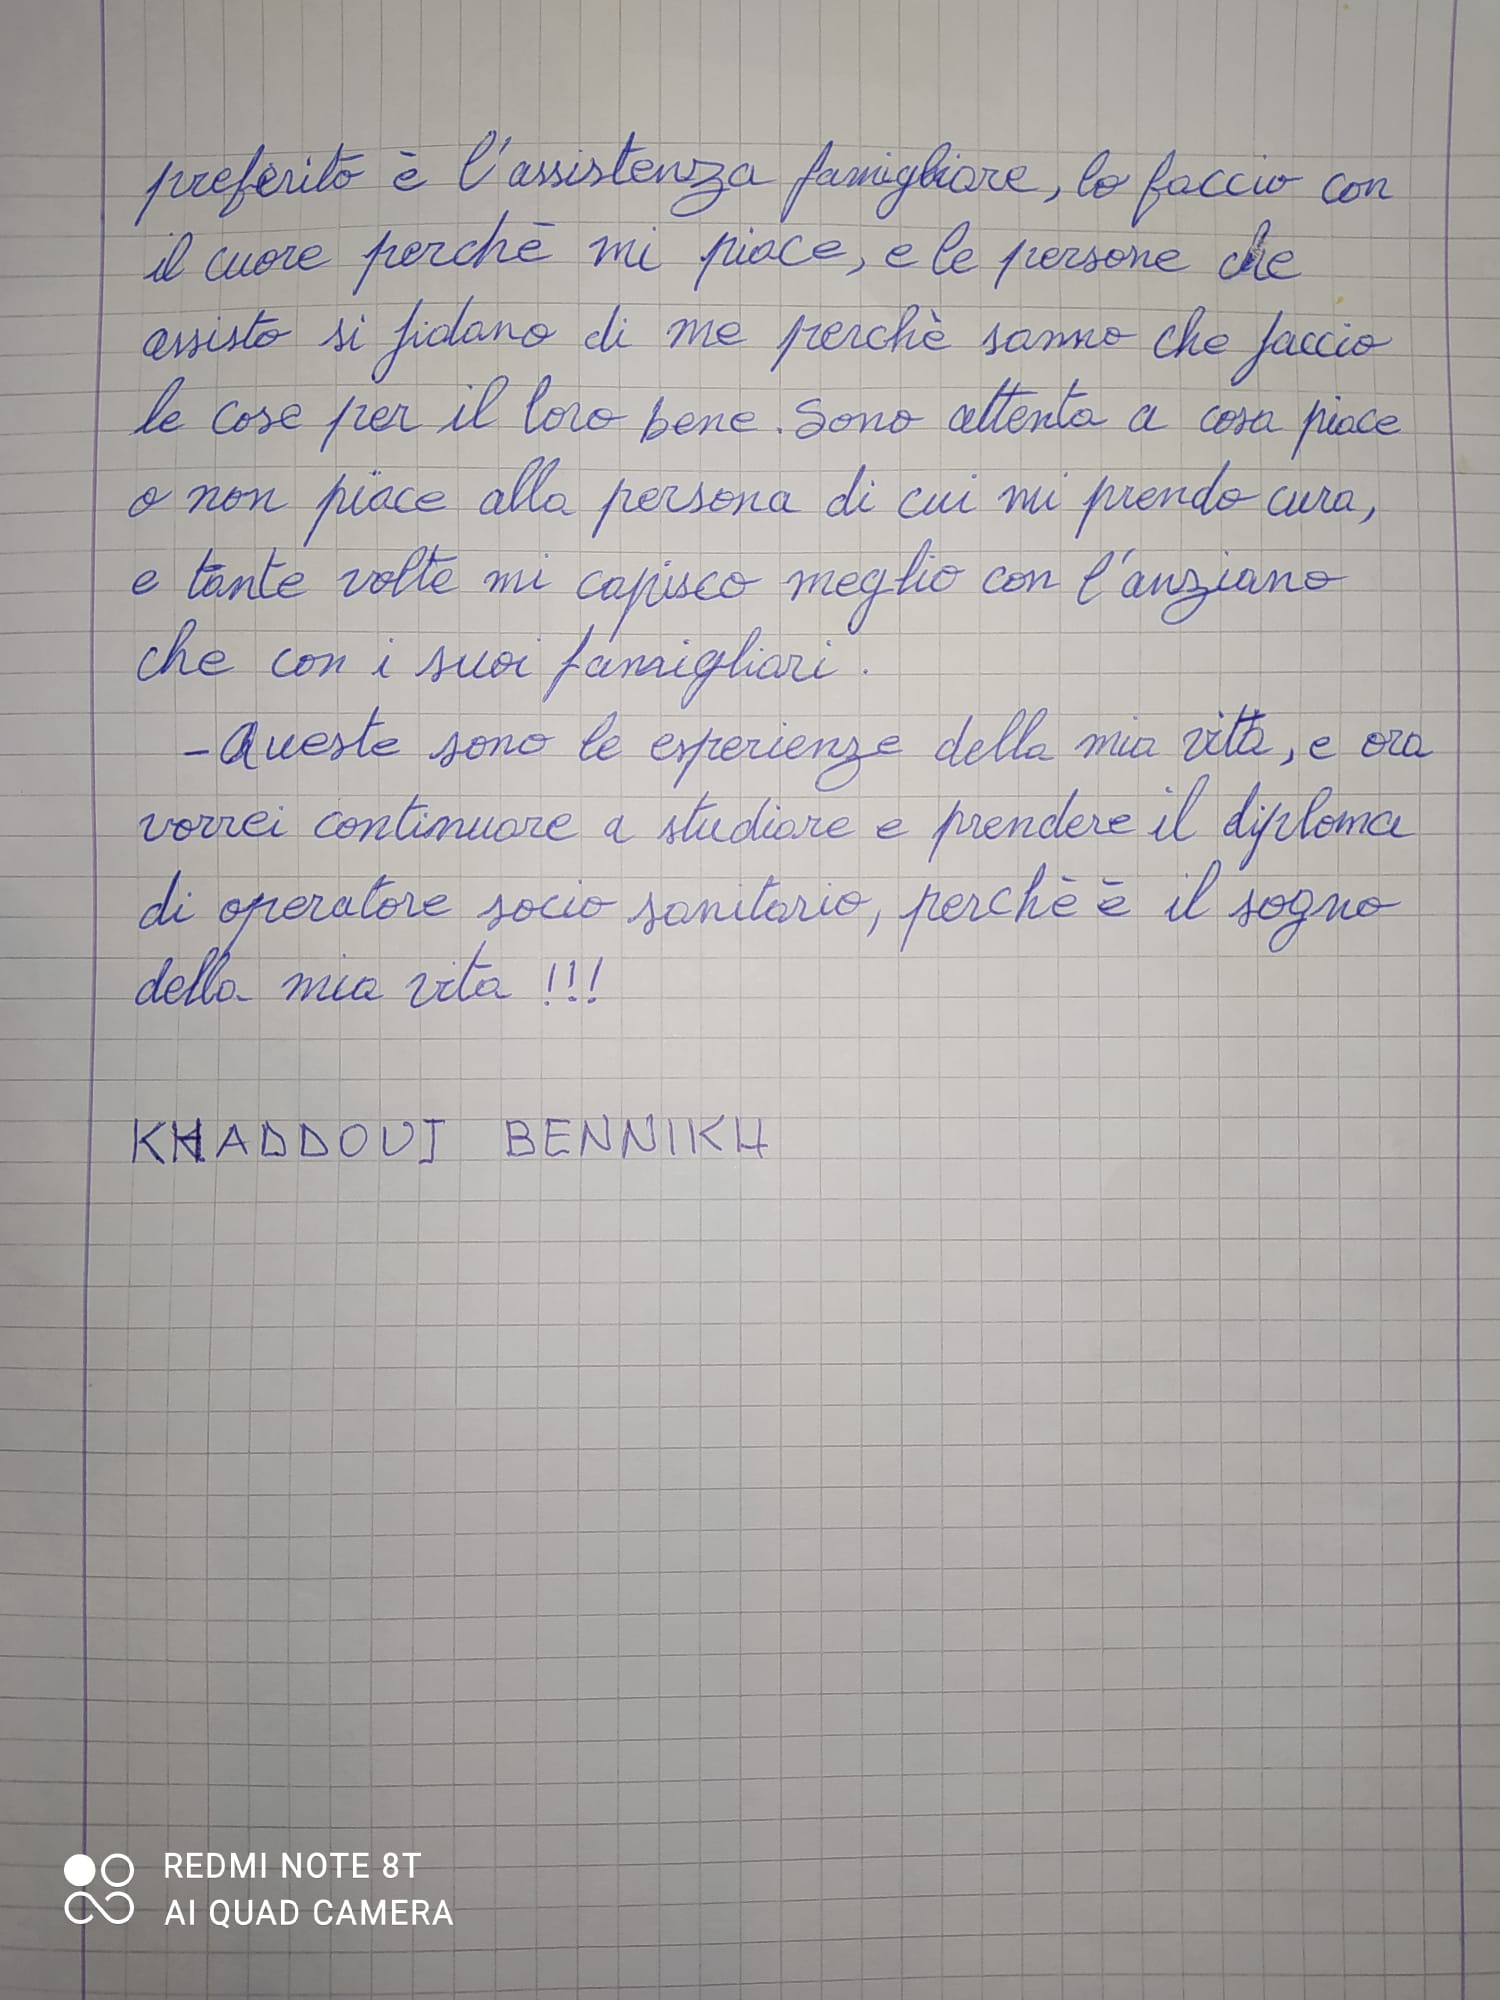 preferito è l'assistenza famigliare, lo faccio con
il cuore perchè mi piace, e le persone che
assisto si fidano di me perchè sanno che faccio
le cose per il loro bene. Sono attenta a cosa piace
o non piace alla persona di cui mi prendo cura,
e tante volte mi capisco meglio con l'anziano
che con i suoi famigliari.
- Queste sono le esperienze della mia vita, e ora
vorrei continuare a studiare e prendere il diploma
di operatore socio sanitario, perchè è il sogno
della mia vita !!!
KHADDOUJ BENNIKH
REDMI NOTE 8T
AI QUAD CAMERA